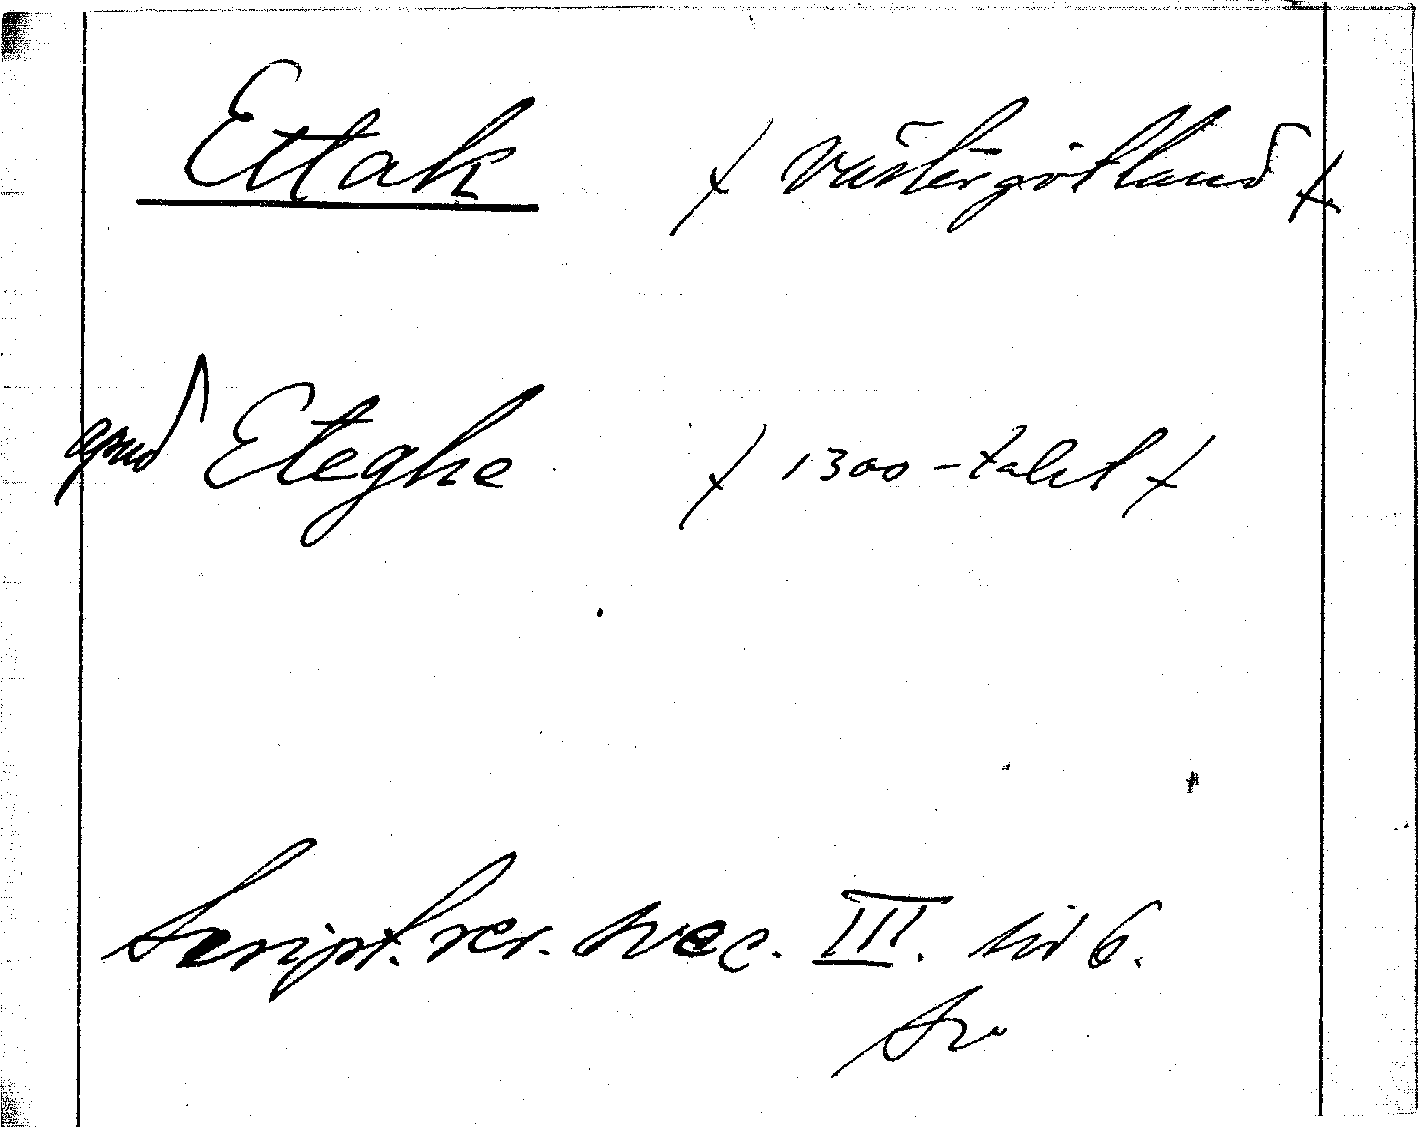 Ettak / Västergötland /
apud Eteghe / 1300-talet /
Script. rer. svec. III. sid 6.